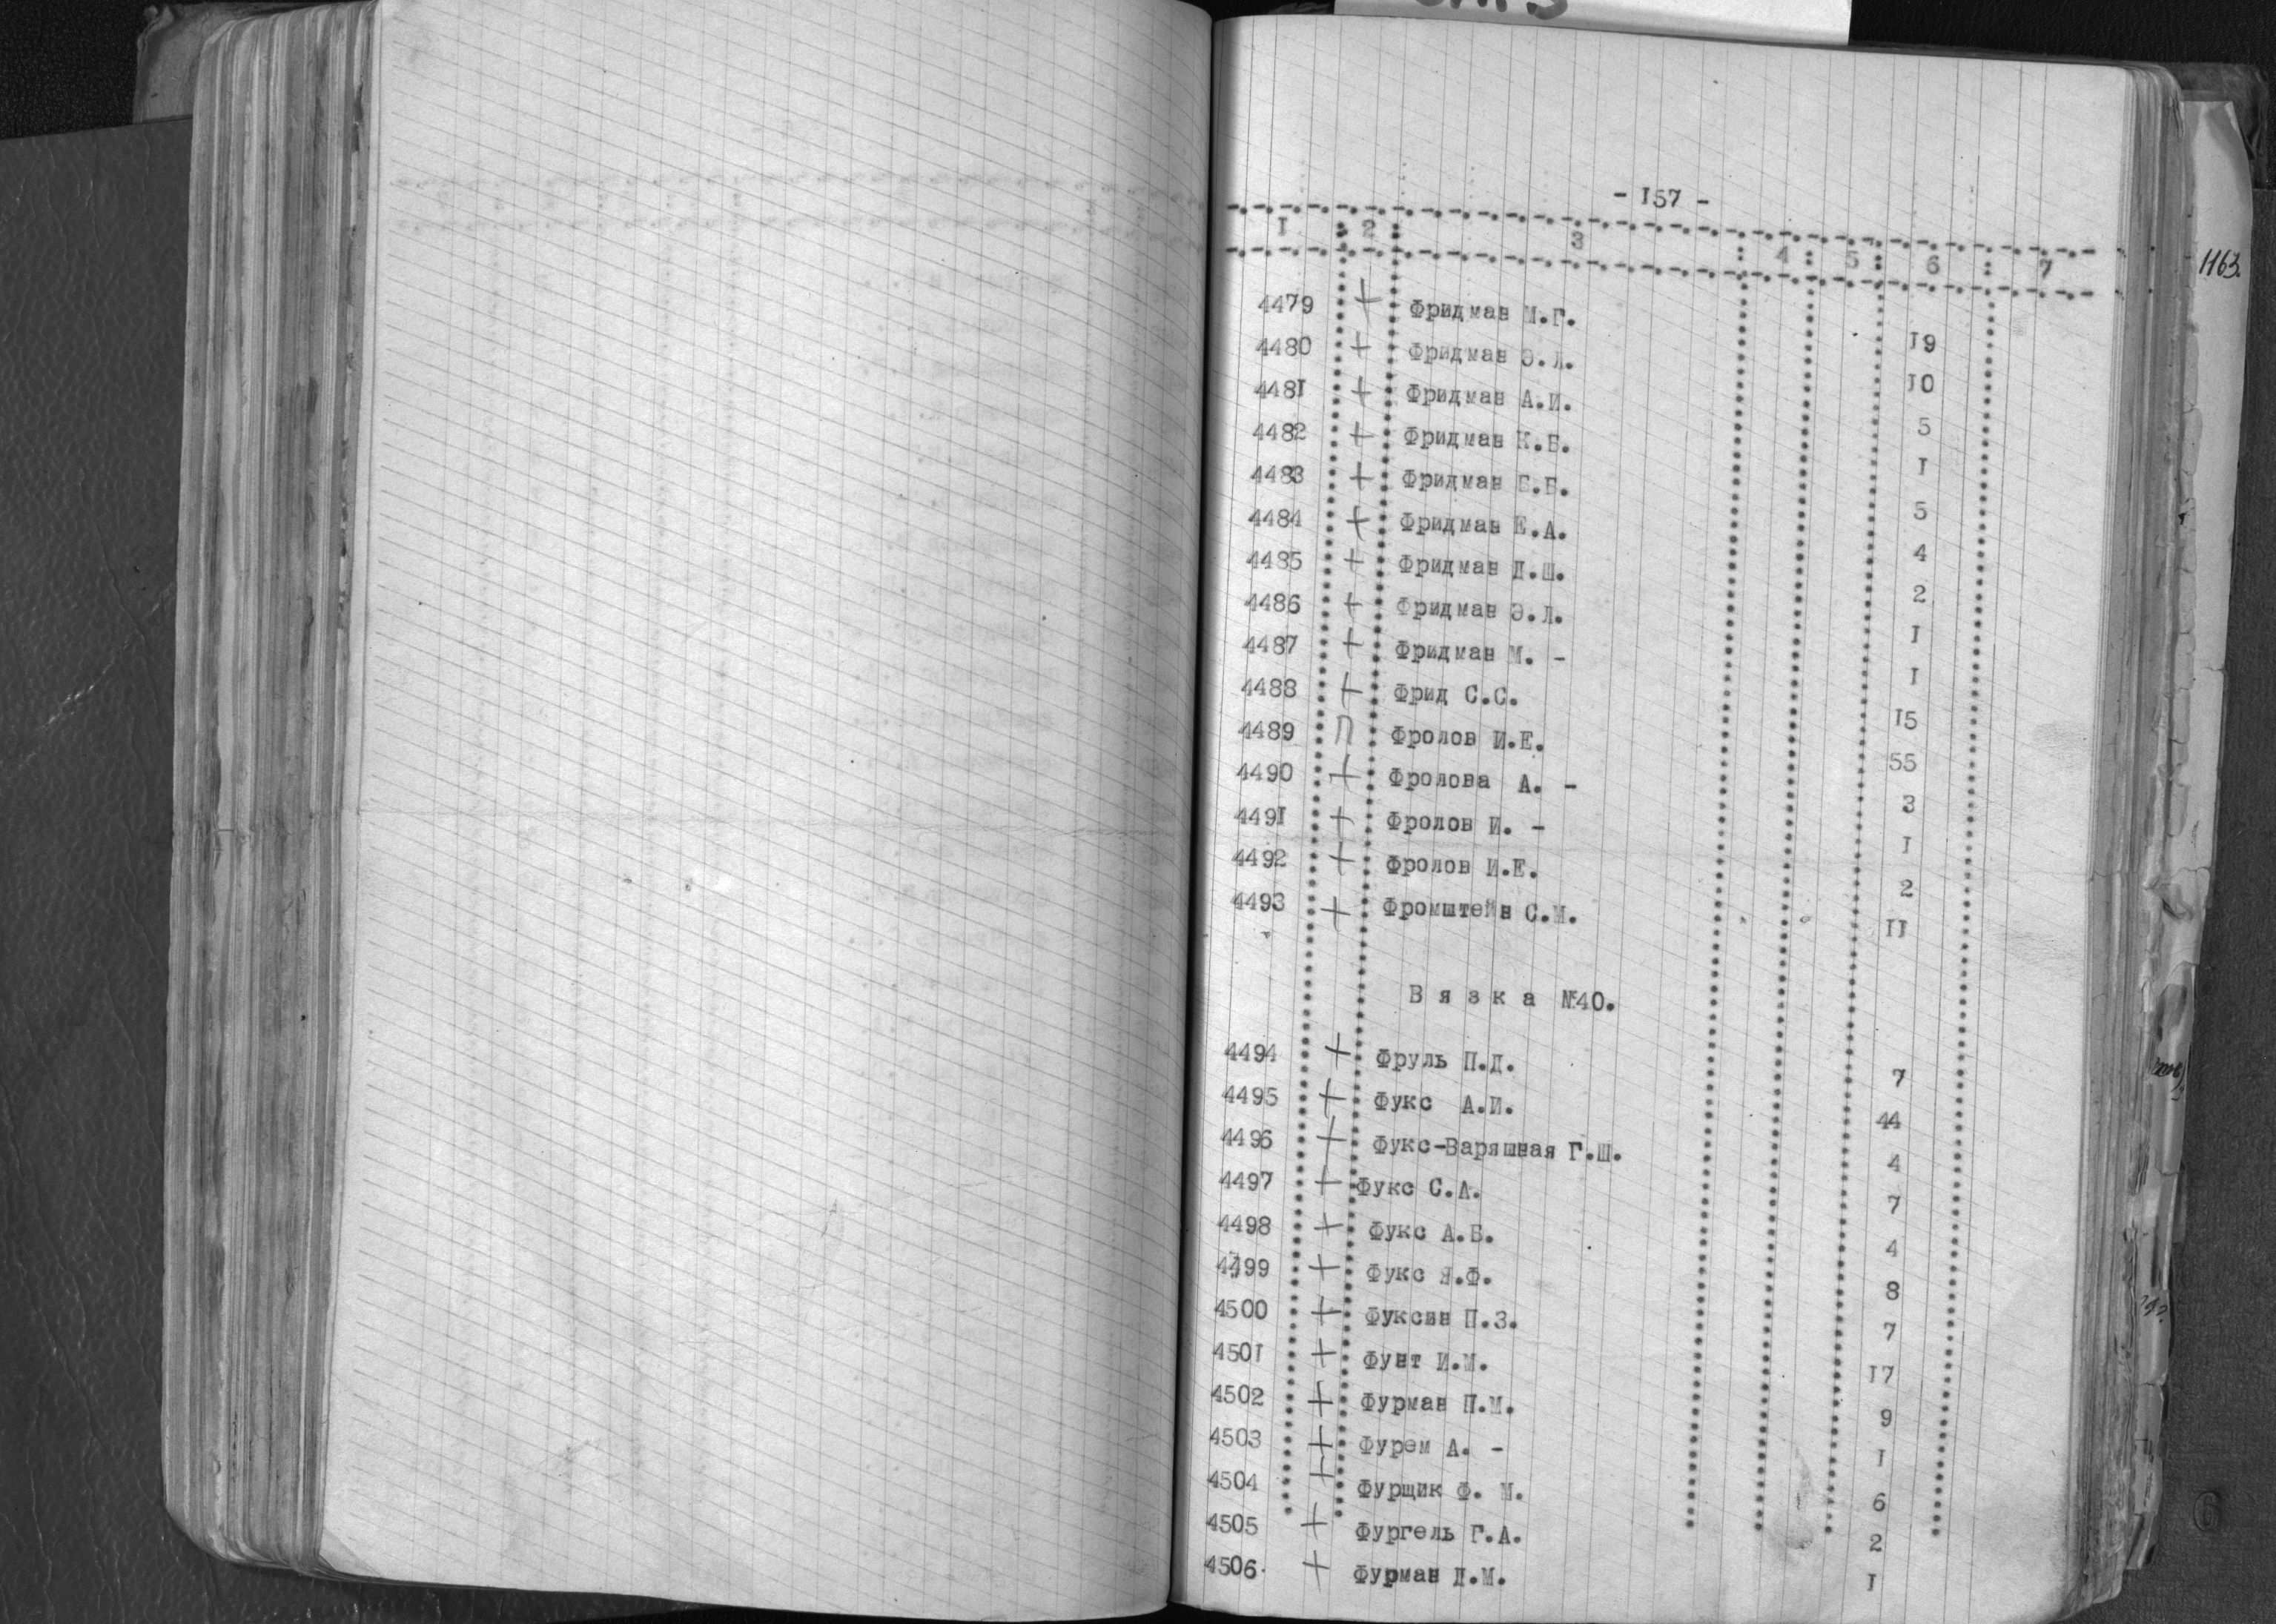 - I57 -
I 2 3 4 5 6 7
4479 + Фридман М.Г. I9
4480 + Фридман Э.Л. I0
448I + Фридман А.И. 5
4482 + Фридман К.Б. I
4483 + Фридман Б.Б. 5
4484 + Фридман Е.А. 4
4485 + Фридман Д.Ш. 2
4486 + Фридман Э.Л. I
4487 + Фридман М. - I
4488 + Фрид С.С. I5
4489 П Фролов И.Е. 55
4490 + Фролова А. - 3
449I + Фролов И. - I
4492 + Фролов И.Е. 2
4493 + Фромштейн С.М. II
В я з к а №40.
4494 + Фруль П.Д. 7
4495 + Фукс А.И. 44
4496 + Фукс-Варяшная Г.Ш. 4
4497 + Фукс С.А. 7
4498 + Фукс А.В. 4
4499 + Фукс Я.Ф. 8
4500 + Фуксин П.З. 7
450I + Фунт И.М. I7
4502 + Фурман П.М. 9
4503 + Фурем А. - I
4504 + Фурщик Ф. М. 6
4505 + Фургель Г.А. 2
4506 + Фурман Д.М. I
1163.